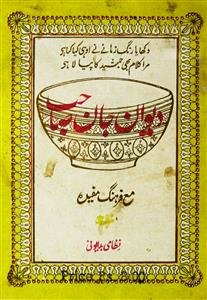 دکھایا رنگ زمانے نے اوسی کیا کیا ہو
مرا کلام بھی جمشید کا پیالا ہو
دیوان جان صاحب
مع فرہنگ مفیدہ
نظامی بدایونی